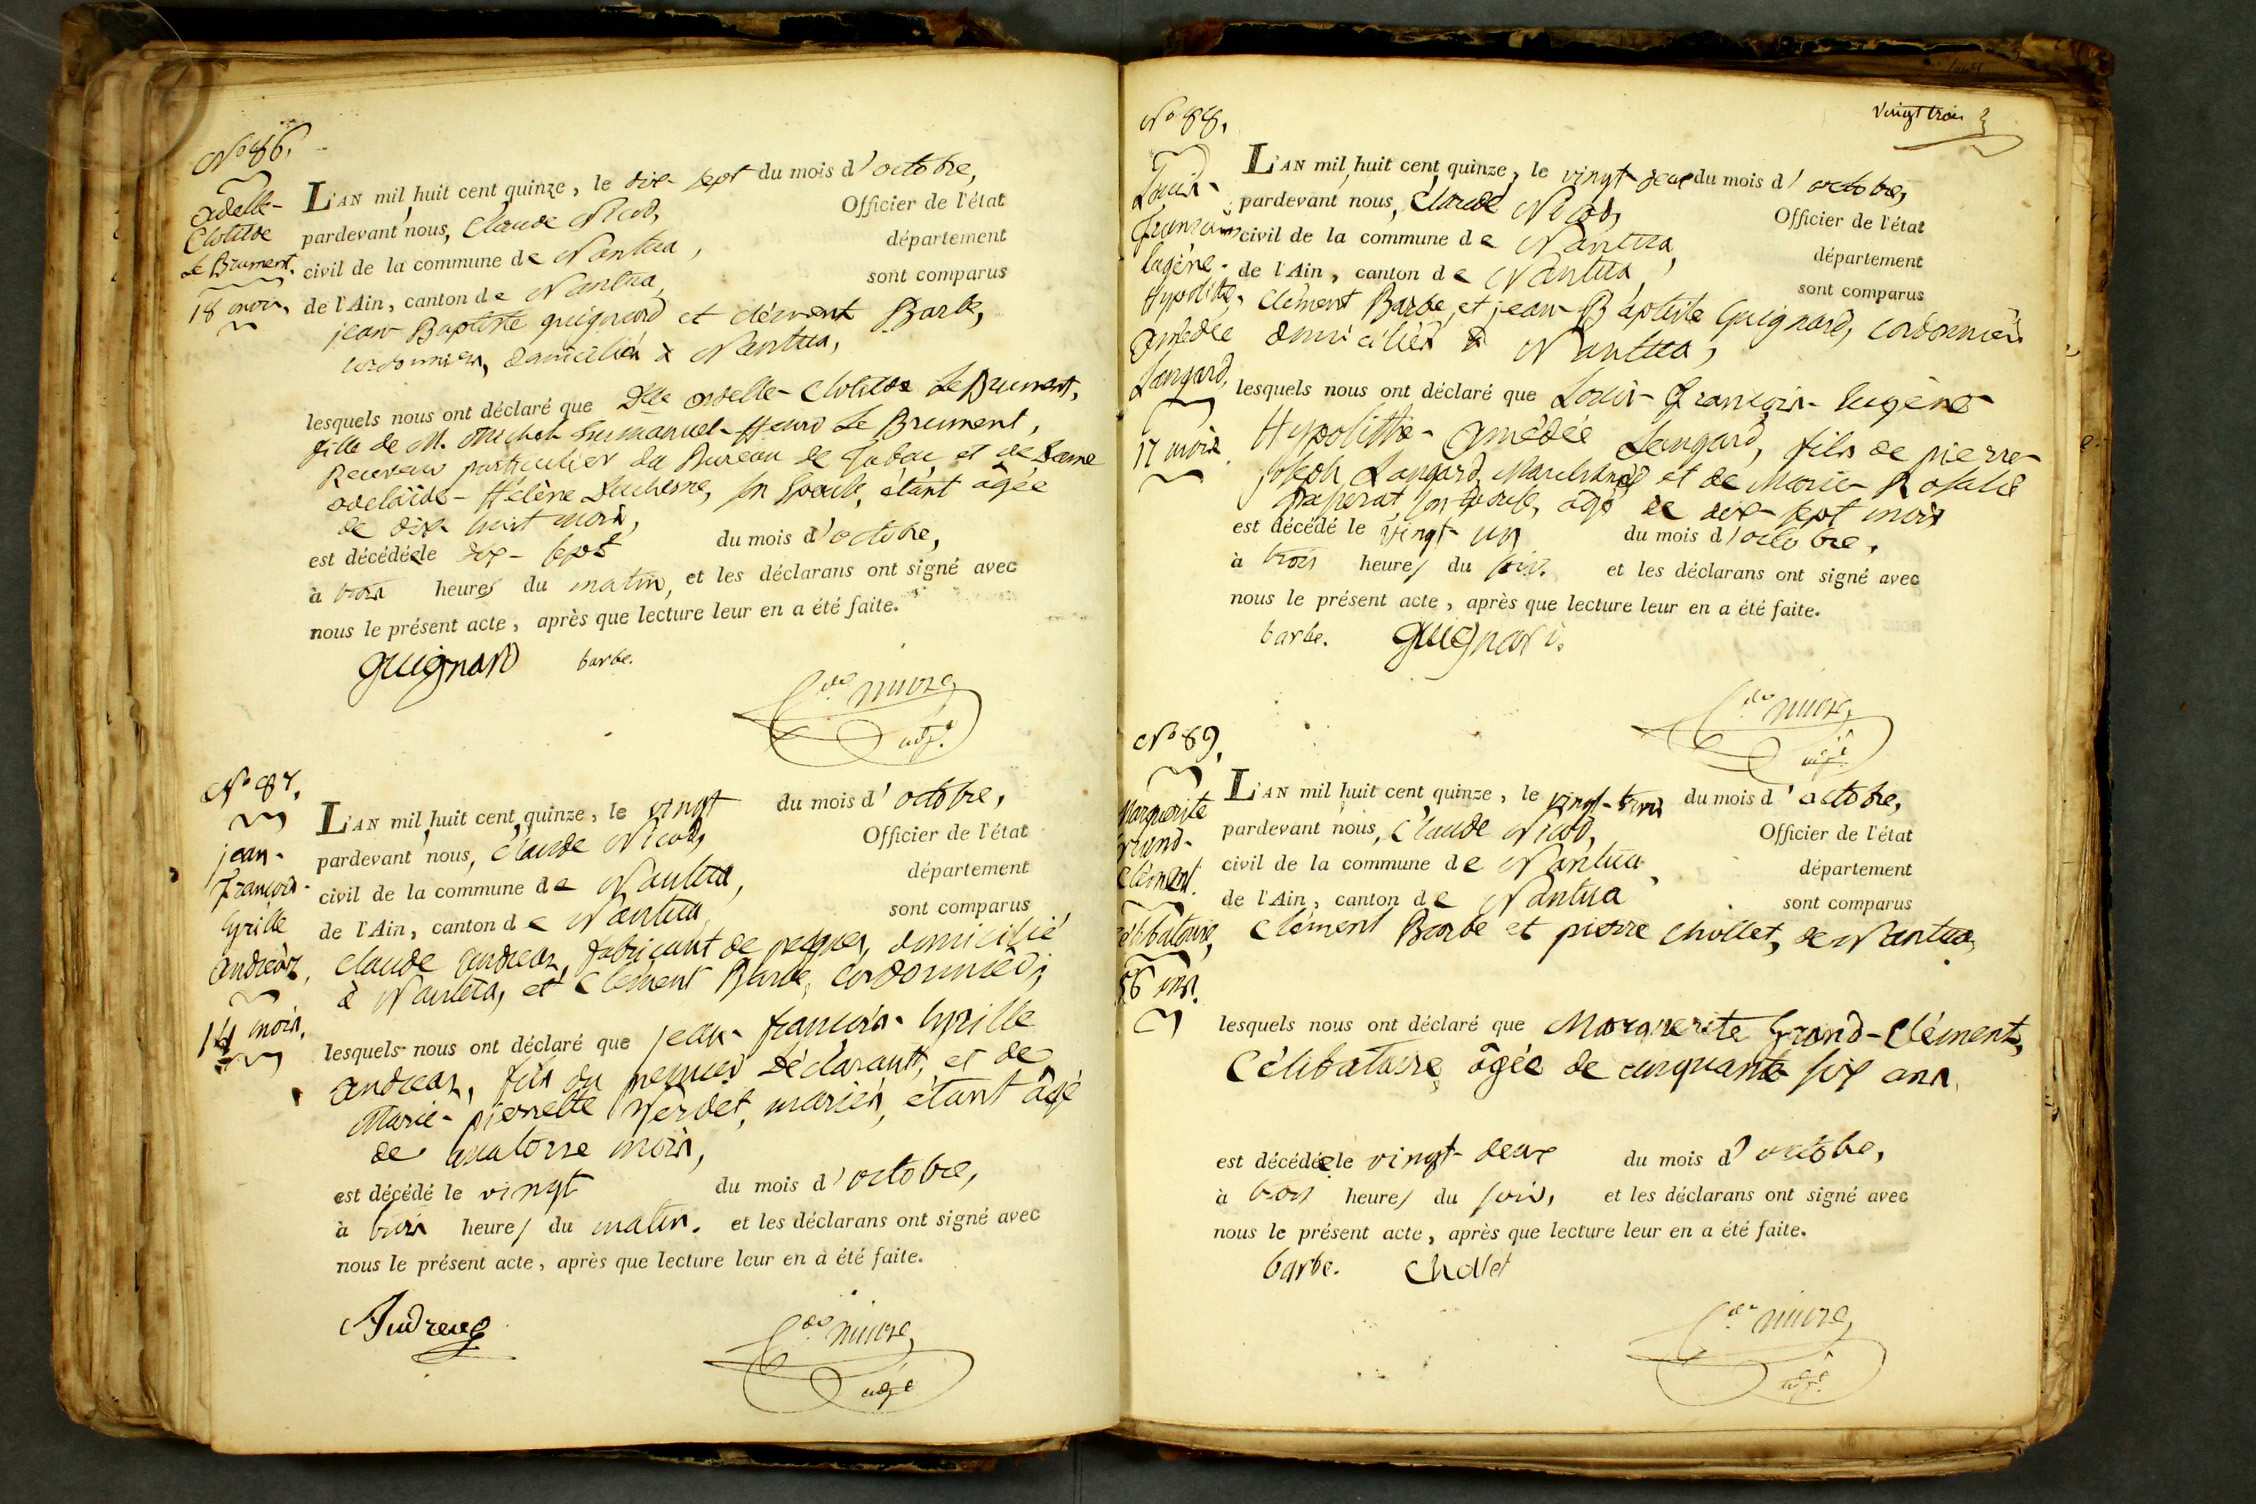 N.o 86.
Adelle-
Clotilde
Le Brument.
18 mois.
L'AN mil huit cent quinze, le dix-sept du mois d'octobre,
pardevant nous, Claude Nicod, Officier de l'état
civil de la commune de Nantua, département
de l'Ain, canton de Nantua, sont comparus
jean Baptiste guignard et clément Barbe,
cordonniers, domiciliés à Nantua,
lesquels nous ont déclaré que Dlle Adelle-Clotilde Le Brument,
fille de M. Michel Emmanuel-Henri Le Brument,
Receveur particulier du Bureau de Tabac, et de Dame
adelaïde-Hélène Duchesne, son Epouse, étant âgée
de dix huit mois,
est décédée le dix-sept du mois d'octobre,
à trois heures du matin, et les déclarans ont signé avec
nous le présent acte, après que lecture leur en a été faite.
guignard barbe.
adjt.
N.o 87.
jean-
françois-
Cyrille
andréaz.
14 mois.
L'AN mil huit cent quinze, le vingt du mois d'octobre,
pardevant nous, Claude Nicod, Officier de l'état
civil de la commune de Nantua, département
de l'Ain, canton de Nantua, sont comparus
Claude andreaz, fabricant de peignes, domicilié
à Nantua, et Clément Barbe, cordonnier;
lesquels nous ont déclaré que jean-françois-Cyrille
andreaz, fils du premier Déclarant, et de
Marie-pierrette Verdet, mariés, étant âgé
de quatorze mois,
est décédé le vingt du mois d'octobre,
à trois heures du matin. et les déclarans ont signé avec
nous le présent acte, après que lecture leur en a été faite.
adjt
vingt trois
N.o 88.
Louis-
François-
Eugène-
Hypolitte-
Amédée
Langard,
17 mois.
L'AN mil huit cent quinze, le vingt-deux du mois d'octobre,
pardevant nous, Claude Nicod, Officier de l'état
civil de la commune de Nantua, département
de l'Ain, canton de Nantua, sont comparus
Clément Barbe, et jean-Baptiste Guignard, cordonniers
domiciliés à Nantua,
lesquels nous ont déclaré que Louis-François-Eugène-
Hypolitte-Amédée Langard, fils de pierre-
joseph Langard, Marchand, et de Marie-Rosalie
son Epouse, âgé de dix-sept mois
est décédé le vingt-un du mois d'octobre,
à trois heures du soir. et les déclarans ont signé avec
nous le présent acte, après que lecture leur en a été faite.
barbe. guignard.
adjt.
N.o 89.
Marguerite
Grand-
Clément.
célibataire,
56 ans.
L'AN mil huit cent quinze, le vingt-trois du mois d'octobre,
pardevant nous, Claude Nicod, Officier de l'état
civil de la commune de Nantua, département
de l'Ain, canton de Nantua sont comparus
Clément Barbe et pierre Chollet, de Nantua,
lesquels nous ont déclaré que Marguerite Grand-Clément,
Célibataire, âgée de cinquante six ans,
est décédée le vingt-deux du mois d'octobre,
à trois heures du soir, et les déclarans ont signé avec
nous le présent acte, après que lecture leur en a été faite.
barbe. Chollet
adjt.